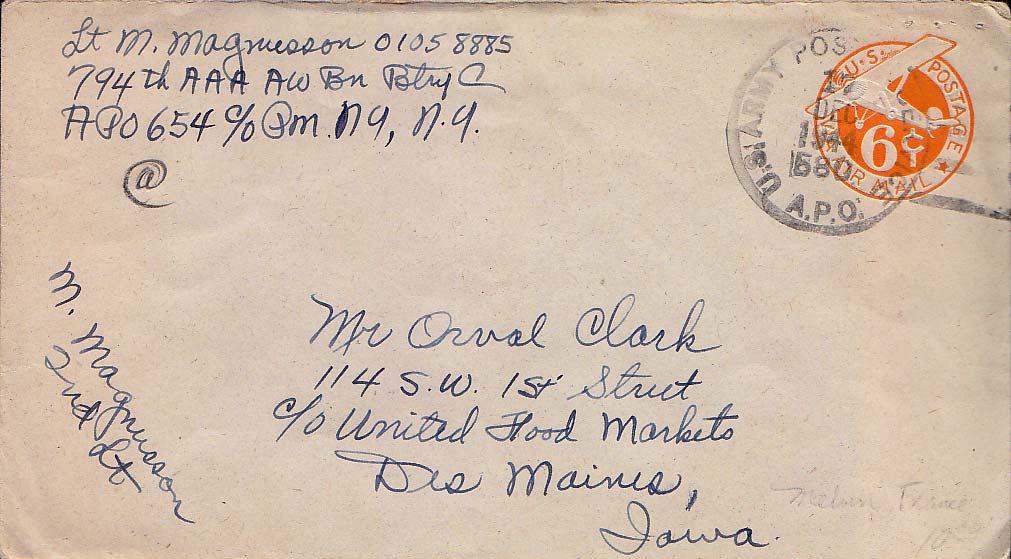 Lt M. Magnusson 01058885
794th AAA AW Bn Btry C
APO 654 c/o Pm. N.Y, N.Y.
@
U.S. ARMY POSTAL
12
DEC
1944
580
A.P.O.
U.S. POSTAGE
6¢
AIR MAIL
M. Magnusson
2nd Lt
Mr Orval Clark
114 S.W. 1st Street
c/o United Food Markets
Des Maines,
Iowa.
Melvin